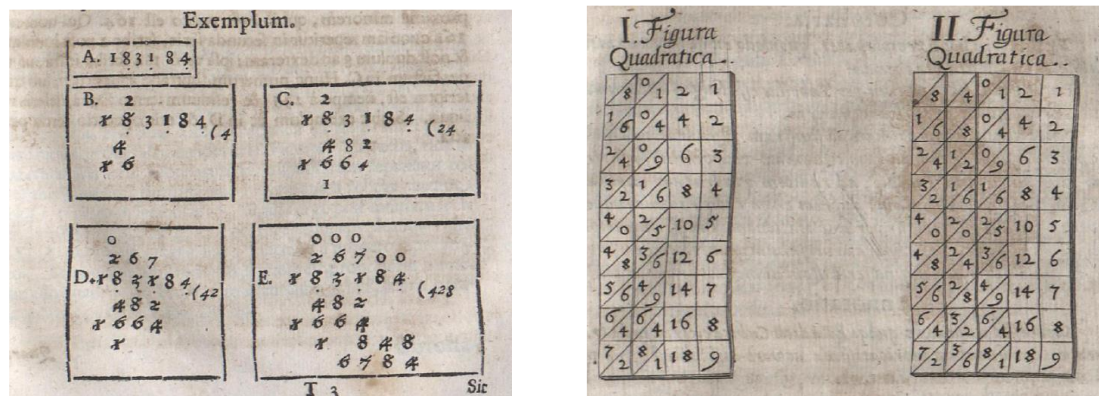 Exemplum.
A. 183184
B. 2
183184 (4
4
16
C. 2
183184 (24
482
1664
1
0
267
D. 183184 (42
482
1664
1
000
26700
E. 183184 (428
482
1664
1 848
6784
T 3 Sic
I. Figura
Quadratica..
8 0 1 2 1
1 6 0 4 4 2
2 4 0 9 6 3
3 2 1 6 8 4
4 0 2 5 10 5
4 8 3 6 12 6
5 6 4 9 14 7
6 4 6 4 16 8
7 2 8 1 18 9
II. Figura
Quadratica..
8 4 0 1 2 1
1 6 8 0 4 4 2
2 4 1 2 0 9 6 3
3 2 1 6 1 6 8 4
4 0 2 0 2 5 10 5
4 8 2 4 3 6 12 6
5 6 2 8 4 9 14 7
6 4 3 2 6 4 16 8
7 2 3 6 8 1 18 9